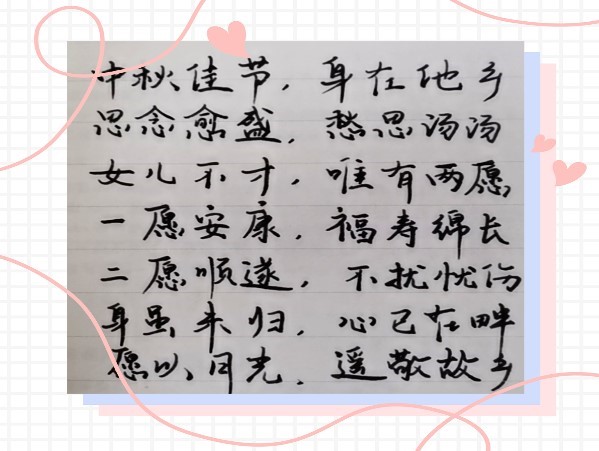 中秋佳节，身在他乡
思念愈盛，愁思汤汤
女儿不才，唯有两愿
一愿安康，福寿绵长
二愿顺遂，不扰忧伤
身虽未归，心已在畔
愿以月光，遥敬故乡